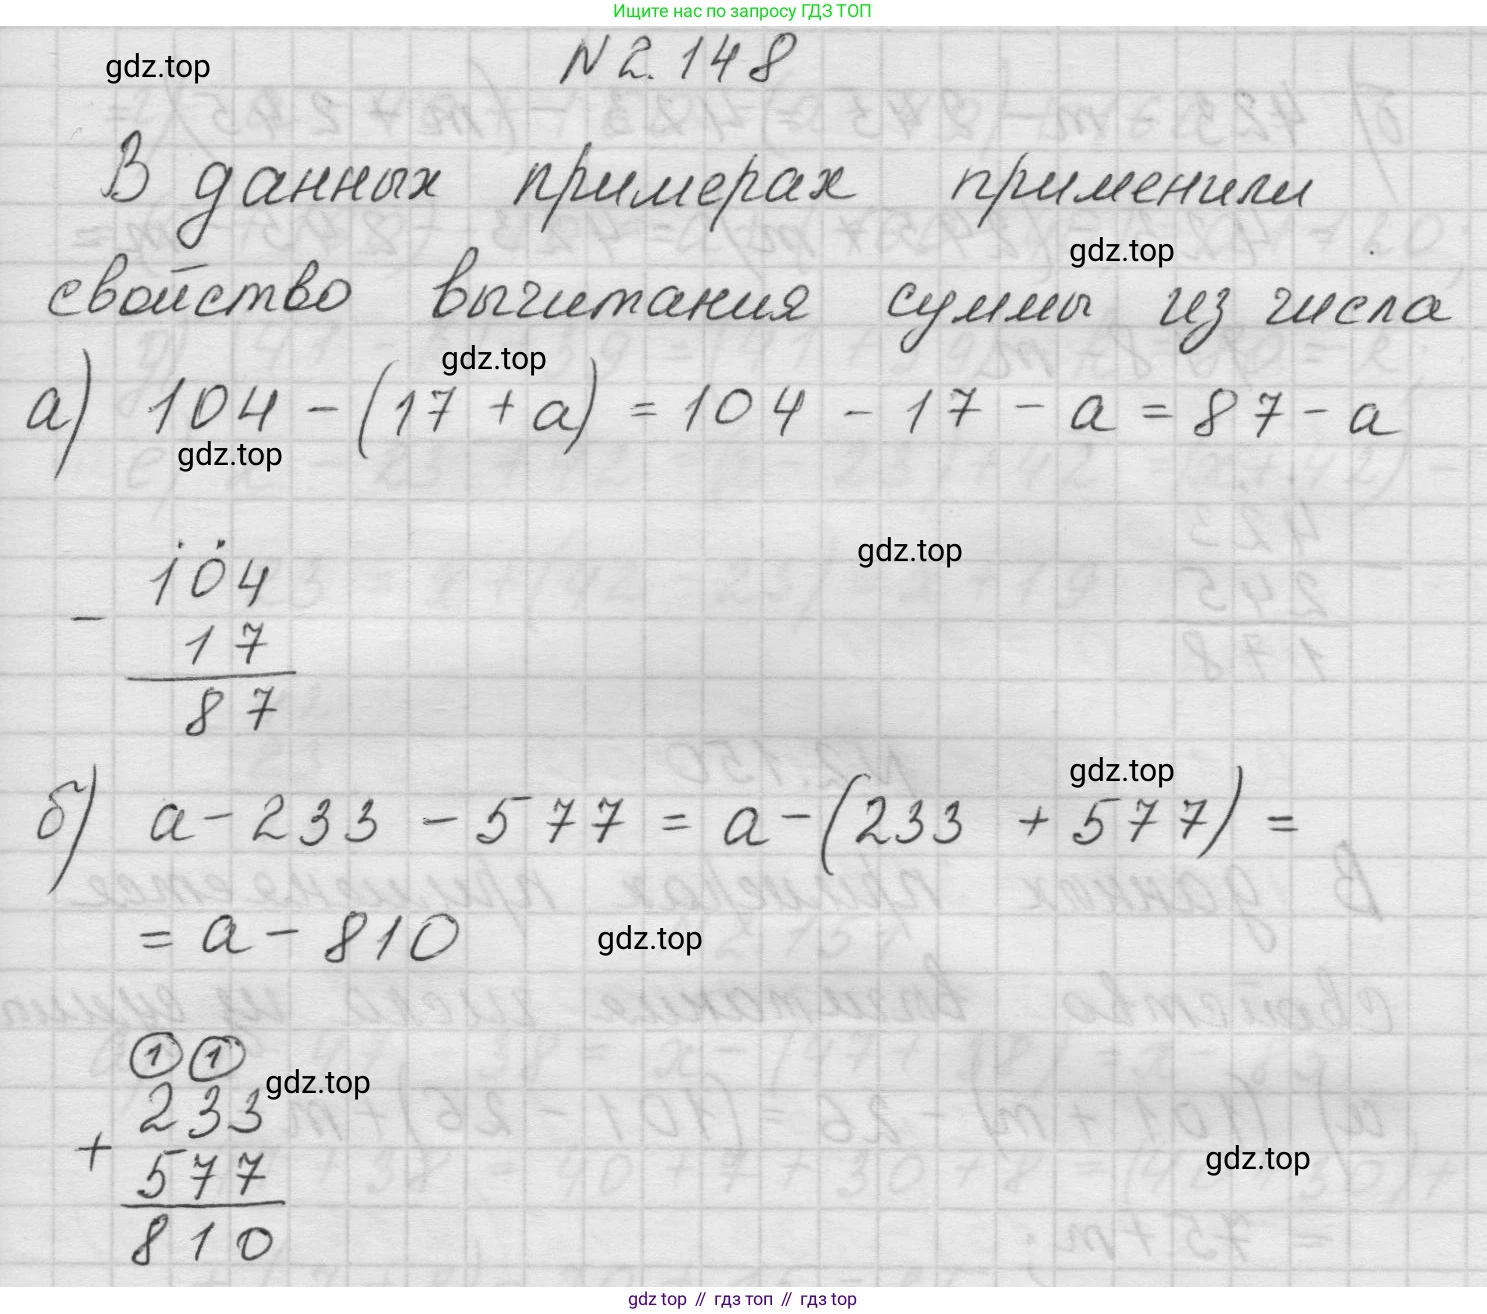 Ищите нас по запросу ГДЗ ТОП
gdz.top
N 2. 148
В данных примерах применили
gdz.top
свойство вычитания суммы из числа
gdz.top
а) 104 - (17 + a) = 104 - 17 - a = 87 - a
gdz.top
gdz.top
104
- 17
87
gdz.top
б) a - 233 - 577 = a - (233 + 577) =
= a - 810
gdz.top
1 1
gdz.top
233
+ 577
gdz.top
810
gdz top // гдз топ // гдз top